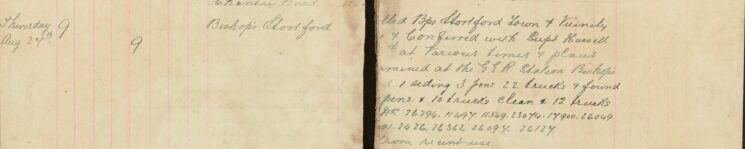 Thursday 9
Aug 24th
9
Bishop's Stortford
lled Bps Stortford Town & Vicinity
& Conferred with Supt Hassell
at various times & places
mined at the G.E.R. Station Bishop's
1 siding 3 pens 22 trucks & found
pens & 10 trucks clean & 12 trucks
26294. 11497. 11549. 23074. 17900. 26049
91. 2426. 26362. 26097. 26127
from recent use